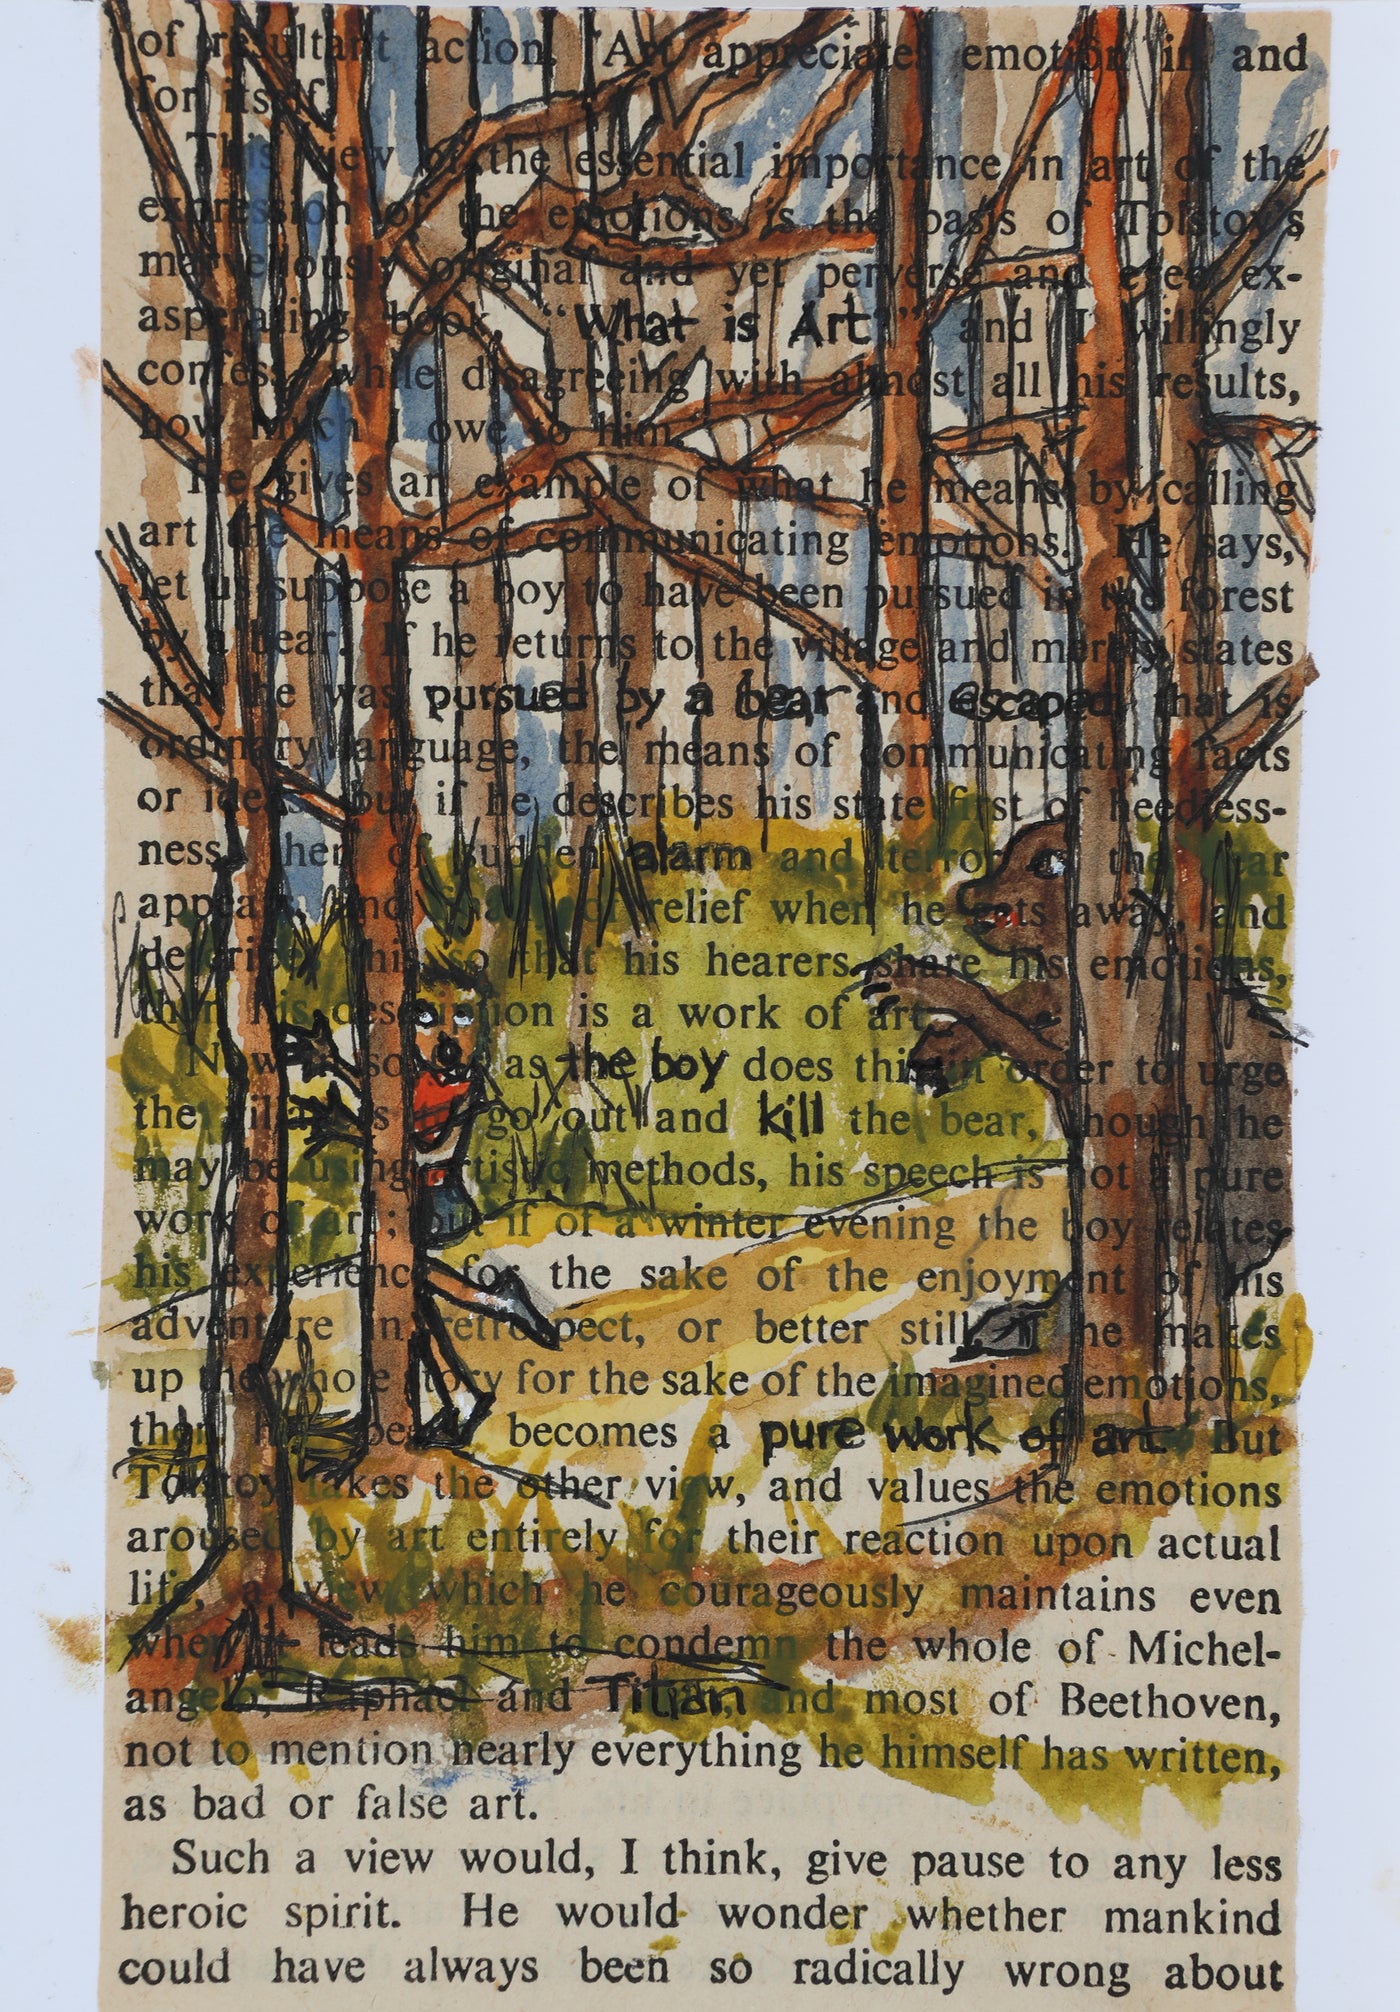 of resultant action. Art appreciates emotion in and
for itself.
This view of the essential importance in art of the
expression of the emotions is the basis of Tolstoy's
marvellously original and yet perverse and even ex-
asperating book, “What is Art?” and I willingly
confess, while disagreeing with almost all his results,
how much I owe to him.
He gives an example of what he means by calling
art the means of communicating emotions. He says,
let us suppose a boy to have been pursued in the forest
by a bear. If he returns to the village and merely states
that he was pursued by a bear and escaped, that is
ordinary language, the means of communicating facts
or ideas; but if he describes his state first of heedless-
ness, then of sudden alarm and terror as the bear
appears, and finally of relief when he gets away, and
describes this so that his hearers share his emotions,
then his description is a work of art.
Now in so far as the boy does this in order to urge
the villagers to go out and kill the bear, though he
may be using artistic methods, his speech is not a pure
work of art; but if of a winter evening the boy relates
his experience for the sake of the enjoyment of his
adventure in retrospect, or better still, if he makes
up the whole story for the sake of the imagined emotions,
then his speech becomes a pure work of art. But
Tolstoy takes the other view, and values the emotions
aroused by art entirely for their reaction upon actual
life, a view which he courageously maintains even
when it leads him to condemn the whole of Michel-
angelo, Raphael and Titian, and most of Beethoven,
not to mention nearly everything he himself has written,
as bad or false art.
Such a view would, I think, give pause to any less
heroic spirit. He would wonder whether mankind
could have always been so radically wrong about